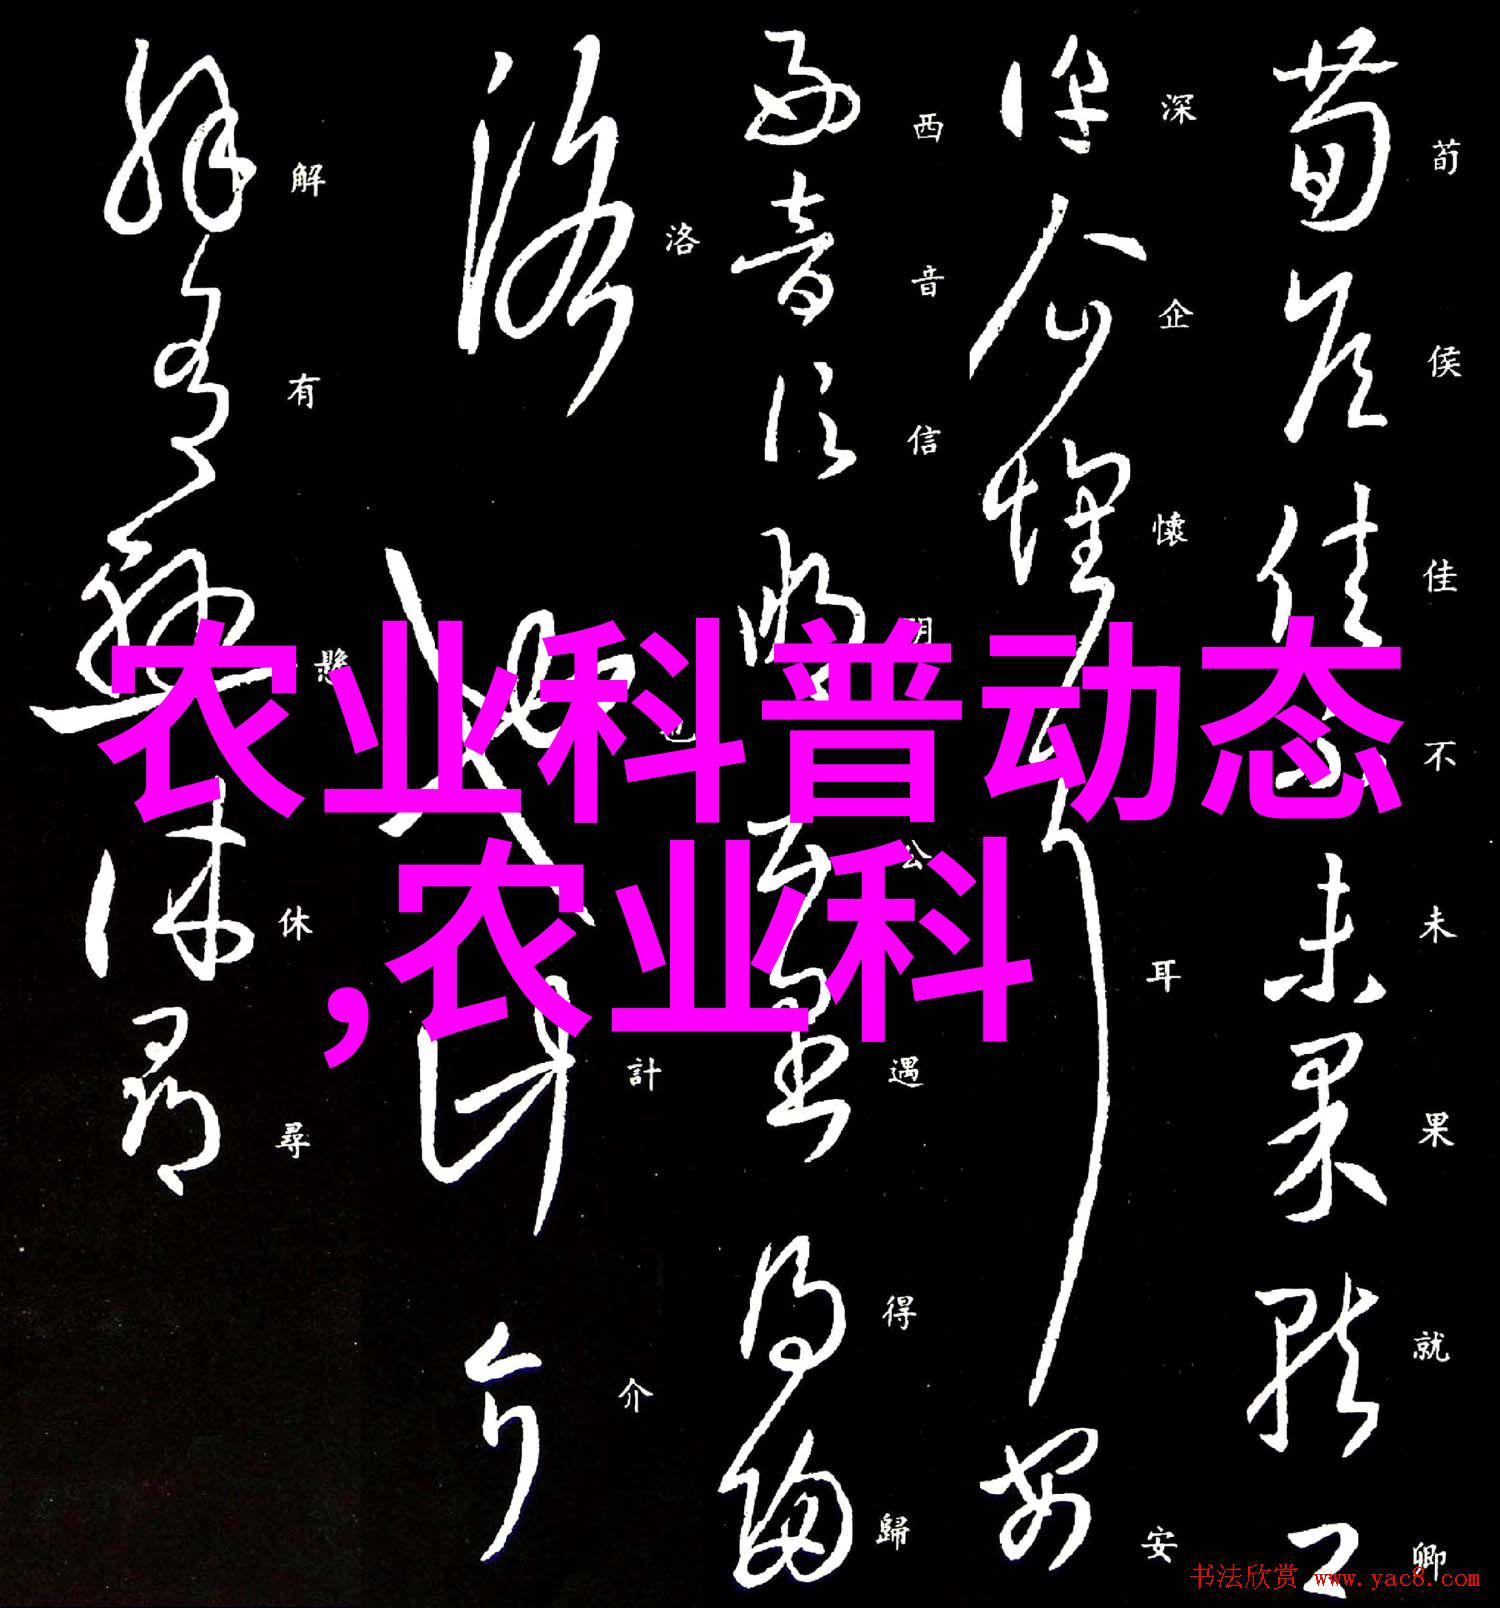 农业科普动态
,农业科
荀侯佳不未果就卿
深企懷耳安
西音信明公遇得歸
洛也計介
解有懸休尋
书法欣赏 www.yac8.com